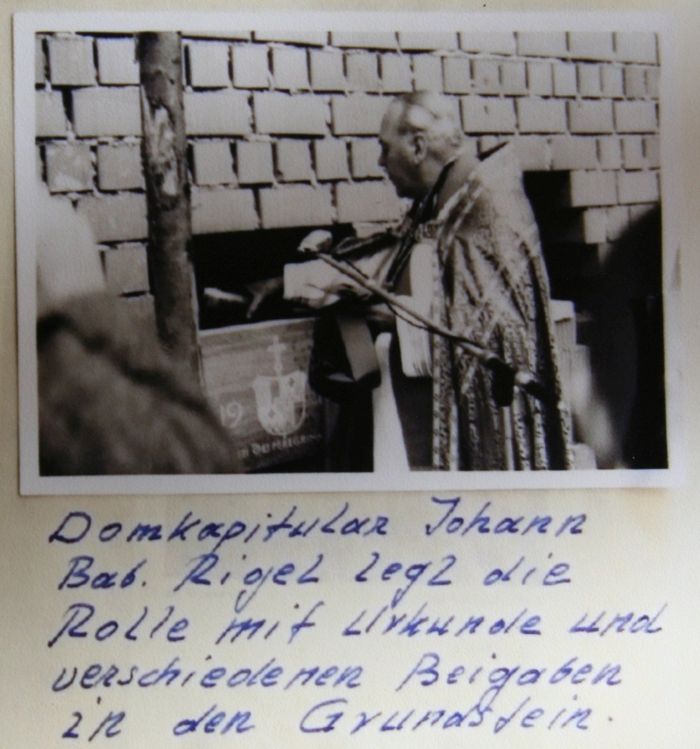 19
DEI PEREGRIN
Domkapitular Johann
Bab. Rigel legt die
Rolle mit Urkunde und
verschiedenen Beigaben
in den Grundstein.